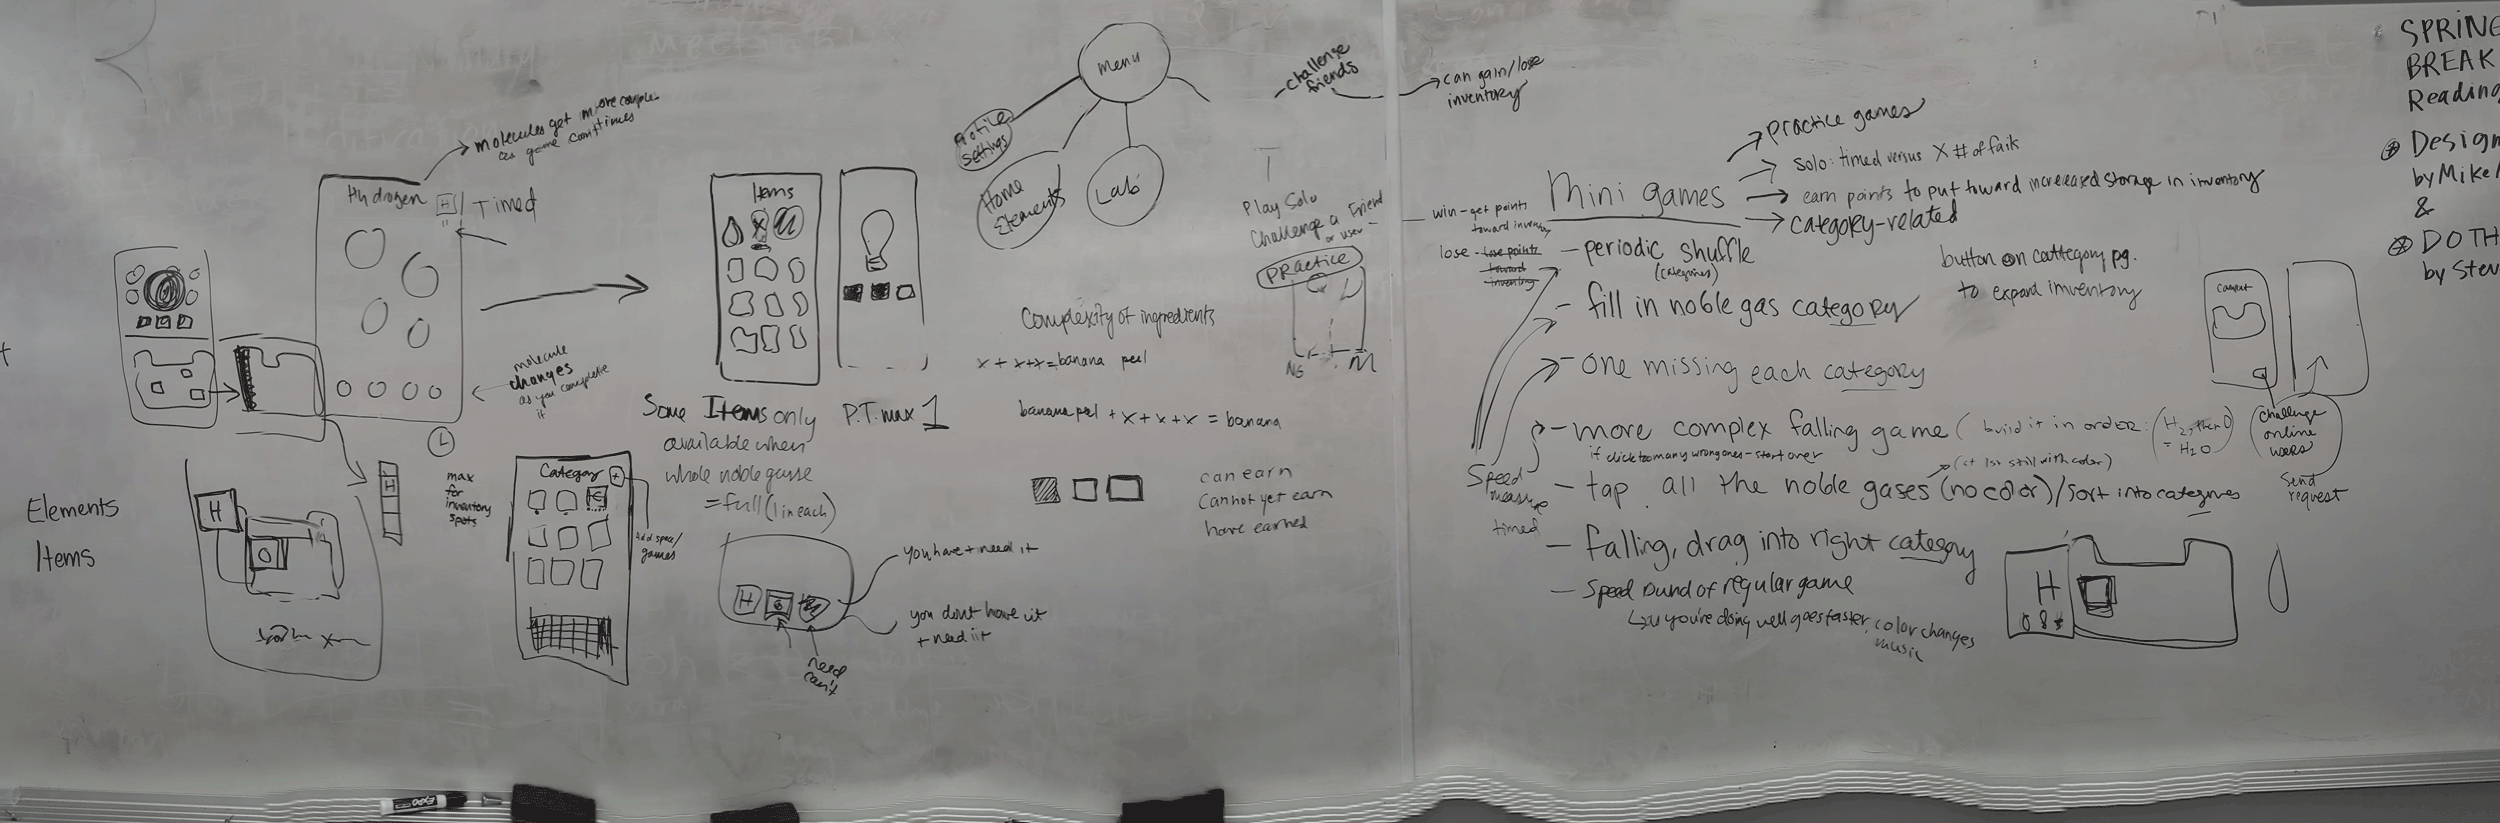 molecules get more complex
as game continues
Hydrogen
H
Timed
molecule
changes
as you complete
it
H
max
for
inventory
spots
Elements
Items
H
O
Items
X
Some Items only
available when
whole noble gasse
= full (1 in each)
P.T. max 1
Category
+
Add space/
games
H
you have + need it
you dont have it
+ need it
need
can't
menu
Profile
settings
Home
Elements
Lab
- challenge
friends
can gain/lose
inventory
Play Solo
Challenge a Friend
or user -
Practice
Complexity of ingredients
x + x + x = banana peel
banana peel + x + x + x = banana
can earn
Cannot yet earn
have earned
Mini games
practice games
Solo: timed versus X # of fails
earn points to put toward increased storage in inventory
category-related
win - get points
toward inventory
lose - lose points
toward
inventory
- periodic shuffle
(categories)
- fill in noble gas category
- one missing each category
- more complex falling game (build it in order: (H2, then O
= H2O
if click too many wrong ones - start over
(at 1st still with color)
- tap all the noble gases (no color)/sort into categories
- falling, drag into right category
- Speed round of regular game
if you're doing well goes faster, color changes
music
Speed
measure
timed
button on cattegory pg.
to expand imventory
Challenge
online
users
Send
request
H
SPRING
BREAK
Reading
Design
by Mike
&
DO TH
by Stev
EXPO